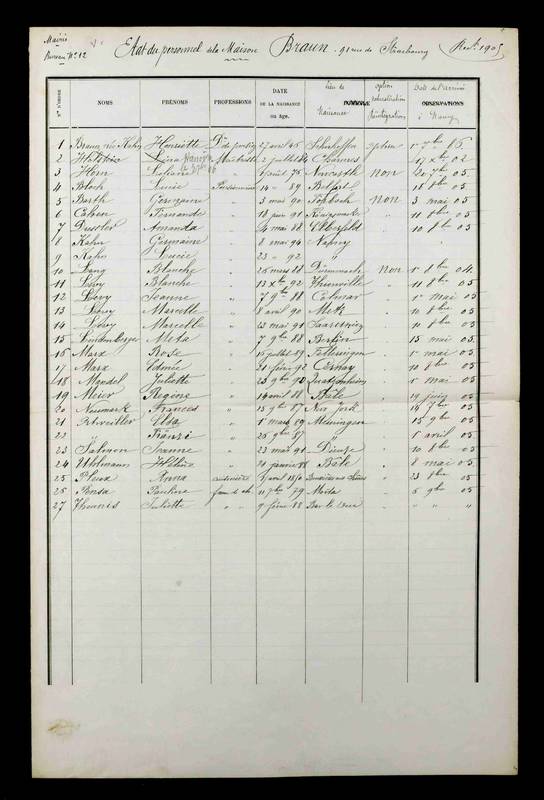 Mairie
Bureau N° 12
Etat du personnel de la Maison Braun . 91 rue de Strasbourg (Rect. 1905
Nos D'ORDRE NOMS PRÉNOMS PROFESSIONS DATE DE LA NAISSANCE ou âge. lieu de Naissance option naturalisation réintégration Date de l'arrivée OBSERVATIONS à Nancy
1 Braun née Kahn Henriette 27 avril 46 option 1 7bre 86
2 Lina Nancy 2 juillet Charmes 17 xbre 02
3 Horn 6 août 75 non 20 7bre 05
4 Bloch Lucie Pensionnaire 14 " 89 Belfort 18 8bre 05
5 Barth Germaine " 3 mai 90 non 3 mai 05
6 Cahen Fernande " 18 juin 91 " 11 8bre 05
7 Amanda " 4 mai 88 Elberfeld 10 8bre 05
8 Kahn Germaine " 8 mai 94 Nancy
9 Kahn Lucie " 23 " 92 "
10 Lang Blanche " 26 mars 88 non 1 8bre 04
11 Lévy Blanche " 13 xbre 92 Thionville " 11 8bre 05
12 Lévy Jeanne " 7 9bre 88 Colmar 1er mai 05
13 Lévy Marcelle " 8 avril 90 Metz 10 8bre 05
14 Lévy Marcelle " 23 mai 91 10 8bre 05
15 Lindenberger Meta " 7 9bre 88 Berlin 15 mai 05
16 Marx Rose " 15 juillet 89 1 mai 05
17 Marx Edmée " 21 février 92 Cernay 10 8bre 05
18 Mendel Juliette " 25 9bre 90 1 mai 05
19 Meier Régine " 14 avril 88 Bâle 19 juin 05
20 Neumark Frances " 15 9bre 87 New York 14 7bre 05
21 Elda " 1 mars 89 Meiningen 15 9bre 05
22 " Fränzi " 25 9bre 87 " 1 avril 05
23 Salmon Jeanne " 23 mai 91 Dieuze 10 8bre 05
24 Uhlmann Hélène " 21 janvier 88 Bâle 8 mai 05
25 Anna cuisinière 23 8bre 05
26 Ponsa Pauline fem. de ch. 11 7bre 79 6 9bre 05
27 Juliette " " 9 février 88 Bar le Duc " " "